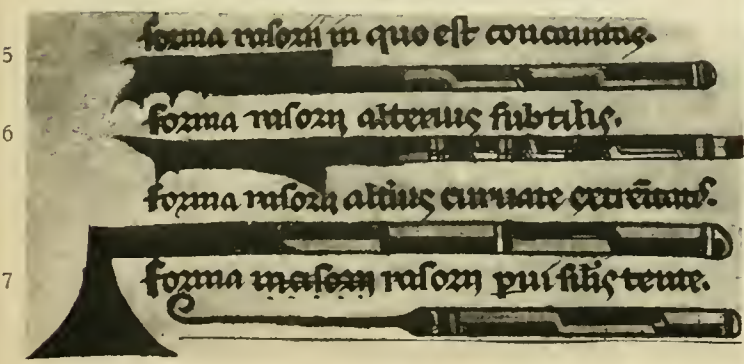 forma rasorii in quo est concauitas.
5
forma rasorii alterius subtilis.
6
forma rasorii altius curuate extremitatis.
7
forma incisorii rasorii parui similis tente.